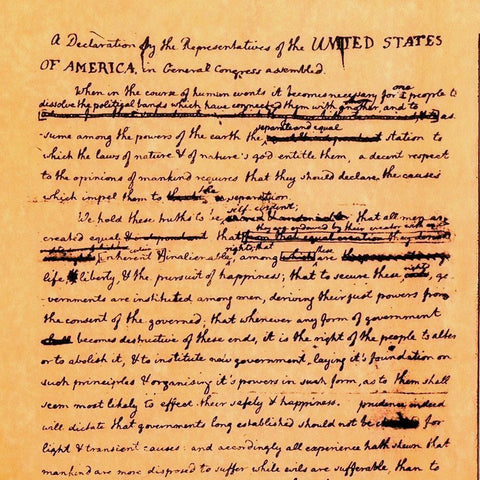 A Declaration by the Representatives of the UNITED STATES
OF AMERICA, in General Congress assembled.
When in the course of human events it becomes necessary for one people to
dissolve the political bands which have connected them with another, and to as-
sume among the powers of the earth the separate and equal station to
which the laws of nature & of nature's god entitle them, a decent respect
to the opinions of mankind requires that they should declare the causes
which impel them to the separation.
We hold these truths to be self-evident; that all men are
created equal that they are endowed by their creator with
inherent & inalienable rights; that among are
life, liberty, & the pursuit of happiness; that to secure these, go-
vernments are instituted among men, deriving their just powers from
the consent of the governed; that whenever any form of government
becomes destructive of these ends, it is the right of the people to alter
or to abolish it, & to institute new government, laying it's foundation on
such principles & organising it's powers in such form, as to them shall
seem most likely to effect their safety & happiness. prudence indeed
will dictate that governments long established should not be for
light & transient causes: and accordingly all experience hath shewn that
mankind are more disposed to suffer while evils are sufferable, than to